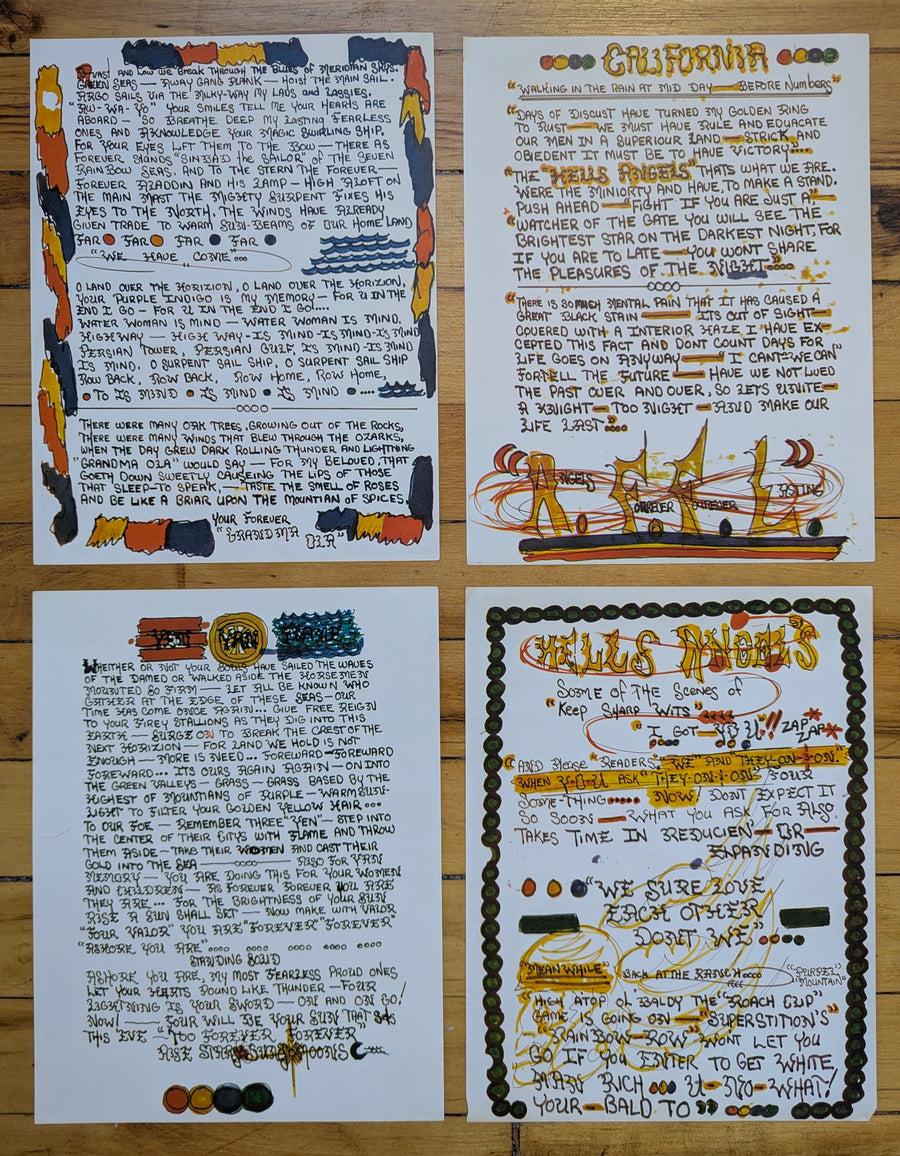 AND HOW WE BREAK THROUGH THE BLUES OF MERIDIAN SKYS.
GREEN SEAS — AWAY GANG PLANK — HOIST THE MAIN SAIL.
ARGO SAILS VIA THE MILKY-WAY MY LADS AND LASSIES.
YOUR SMILES TELL ME YOUR HEARTS ARE
ABOARD — SO BREATHE DEEP MY LASTING FEARLESS
ONES AND AKNOWLEDGE YOUR MAGIC SWIRLING SHIP.
FOR YOUR EYES LIFT THEM TO THE BOW — THERE AS
FOREVER STANDS "SINBAD THE SAILOR" OF THE SEVEN
RAINBOW SEAS. AND TO THE STERN THE FOREVER —
FOREVER ALADDIN AND HIS LAMP — HIGH ALOFT ON
THE MAIN MAST THE MIGHTY SURPENT FIXES HIS
EYES TO THE NORTH. THE WINDS HAVE ALREADY
GIVEN TRADE TO WARM SUN-BEAMS OF OUR HOME LAND
FAR FAR FAR FAR
"WE HAVE COME"...
O LAND OVER THE HORIZION, O LAND OVER THE HORIZION,
YOUR PURPLE INDIGO IS MY MEMORY — FOR U IN THE
END I GO — FOR U IN THE END I GO....
WATER WOMAN IS MIND — WATER WOMAN IS MIND.
HIGHWAY — HIGH WAY - IS MIND - IS MIND - IS MIND
PERSIAN TOWER, PERSIAN GULF, IS MIND - IS MIND
IS MIND. O SURPENT SAIL SHIP, O SURPENT SAIL SHIP
ROW BACK, ROW BACK, ROW HOME, ROW HOME,
TO IS MIND IS MIND IS MIND ....
THERE WERE MANY OAK TREES, GROWING OUT OF THE ROCKS,
THERE WERE MANY WINDS THAT BLEW THROUGH THE OZARKS,
WHEN THE DAY GREW DARK ROLLING THUNDER AND LIGHTNING
"GRANDMA OLA" WOULD SAY — FOR MY BELOVED, THAT
GOETH DOWN SWEETLY CAUSEING THE LIPS OF THOSE
THAT SLEEP-TO SPEAK, — TASTE THE SMELL OF ROSES
AND BE LIKE A BRIAR UPON THE MOUNTIAN OF SPICES,
YOUR FOREVER
"GRANDMA OLA"
CALIFORNIA
"WALKING IN THE RAIN AT MID DAY — BEFORE NUMBERS"
"DAYS OF DISCUST HAVE TURNED MY GOLDEN RING
TO RUST — WE MUST HAVE RULE AND EDUACATE
OUR MEN IN A SUPERIOUR LAND — STRICK AND
OBIEDENT IT MUST BE TO HAVE VICTORY....
"THE "HELLS ANGELS" THATS WHAT WE ARE.
WERE THE MINIORTY AND HAVE TO MAKE A STAND.
PUSH AHEAD — "FIGHT IF YOU ARE JUST A"
"WATCHER OF THE GATE YOU WILL SEE THE
BRIGHTEST STAR ON THE DARKEST NIGHT, FOR
IF YOU ARE TO LATE — YOU WONT SHARE
THE PLEASURES OF THE NIGHT"....
"THERE IS SO MUCH MENTAL PAIN THAT IT HAS CAUSED A
GREAT BLACK STAIN — ITS OUT OF SIGHT —
COVERED WITH A INTERIOR HAZE I HAVE EX-
CEPTED THIS FACT AND DONT COUNT DAYS FOR
LIFE GOES ON ANYWAY — "I CANT" WE CAN"
FORTELL THE FUTURE — HAVE WE NOT LIVED
THE PAST OVER AND OVER, SO LETS UNITE —
A KNIGHT — TOO NIGHT — AND MAKE OUR
LIFE LAST"....
"A. F. F. L."
ANGELS FOREVER FOREVER LASTING
YEN VAN
WHETHER OR NOT YOUR SOULS HAVE SAILED THE WAVES
OF THE DAMED OR WALKED ASIDE THE HORSEMEN
MOUNTED SO FIRM — LET ALL BE KNOWN WHO
GATHER AT THE EDGE OF THESE SEAS — OUR
TIME HAS COME ONCE AGAIN... GIVE FREE REIGN
TO YOUR FIREY STALLIONS AS THEY DIG INTO THIS
EARTH — SURGE ON TO BREAK THE CREST OF THE
NEXT HORIZION — FOR LAND WE HOLD IS NOT
ENOUGH — MORE IS NEED... FOREWARD — FOREWARD
FOREWARD... ITS OURS AGAIN AGAIN — ON INTO
THE GREEN VALLEYS — GRASS — GRASS BASED BY THE
HIGHEST OF MOUNTIANS OF PURPLE — WARM SUN-
LIGHT TO FILTER YOUR GOLDEN YELLOW HAIR...
TO OUR FOE — REMEMBER THREE "YEN" — STEP INTO
THE CENTER OF THEIR CITYS WITH FLAME AND THROW
THEM ASIDE — TAKE THEIR WOMEN AND CAST THEIR
GOLD INTO THE SEA — ALSO FOR VAN
MEMORY — YOU ARE DOING THIS FOR YOUR WOMEN
AND CHILDREN — AS FOREVER FOREVER YOU ARE
THEY ARE... FOR THE BRIGHTNESS OF YOUR SUN
RISE A SUN SHALL SET — NOW MAKE WITH VALOR
"FOUR VALOR" YOU ARE "FOREVER" "FOREVER"
"ASHORE YOU ARE" .... .... .... .... ....
STANDING SOLID
ASHORE YOU ARE, MY MOST FEARLESS PROUD ONES
LET YOUR HEARTS POUND LIKE THUNDER — FOUR
LIGHTNING IS YOUR SWORD — ON AND ON GO!
NOW! — FOUR WILL BE YOUR SUN THAT
THIS EVE — TOO FOREVER FOREVER
RISE STARS SUNS MOONS
HELLS ANGELS
SOME OF THE SCENES OF
"KEEP SHARP WITS"
"I GOT — YO U"!! ZAP
ZAP
"AND PLEASE "READERS. "WE" AND THEY-ON-&-ON."
WHEN Y-O-U ASK "THEY-ON-&-ON" FOUR
SOME-THING..... NOW! DONT EXPECT IT
SO SOON — WHAT YOU ASK FOR ALSO
TAKES TIME IN REDUCIEN — OR —
EXPANDING
"WE SURE LOVE
EACH OTHER
DONT WE"
"MEAN WHILE" BACK AT THE RANCH.... "PURPEL MOUNTAIN"
"HIGH ATOP OL BALDY THE "ROACH CUP"
GAME IS GOING ON — "SUPERSTITION'S"
"RAINBOW — ROW" WONT LET YOU
GO IF YOU ENTER TO GET WHITE
MAN RICH ... U — NO — WHAT!
YOUR — BALD TO "